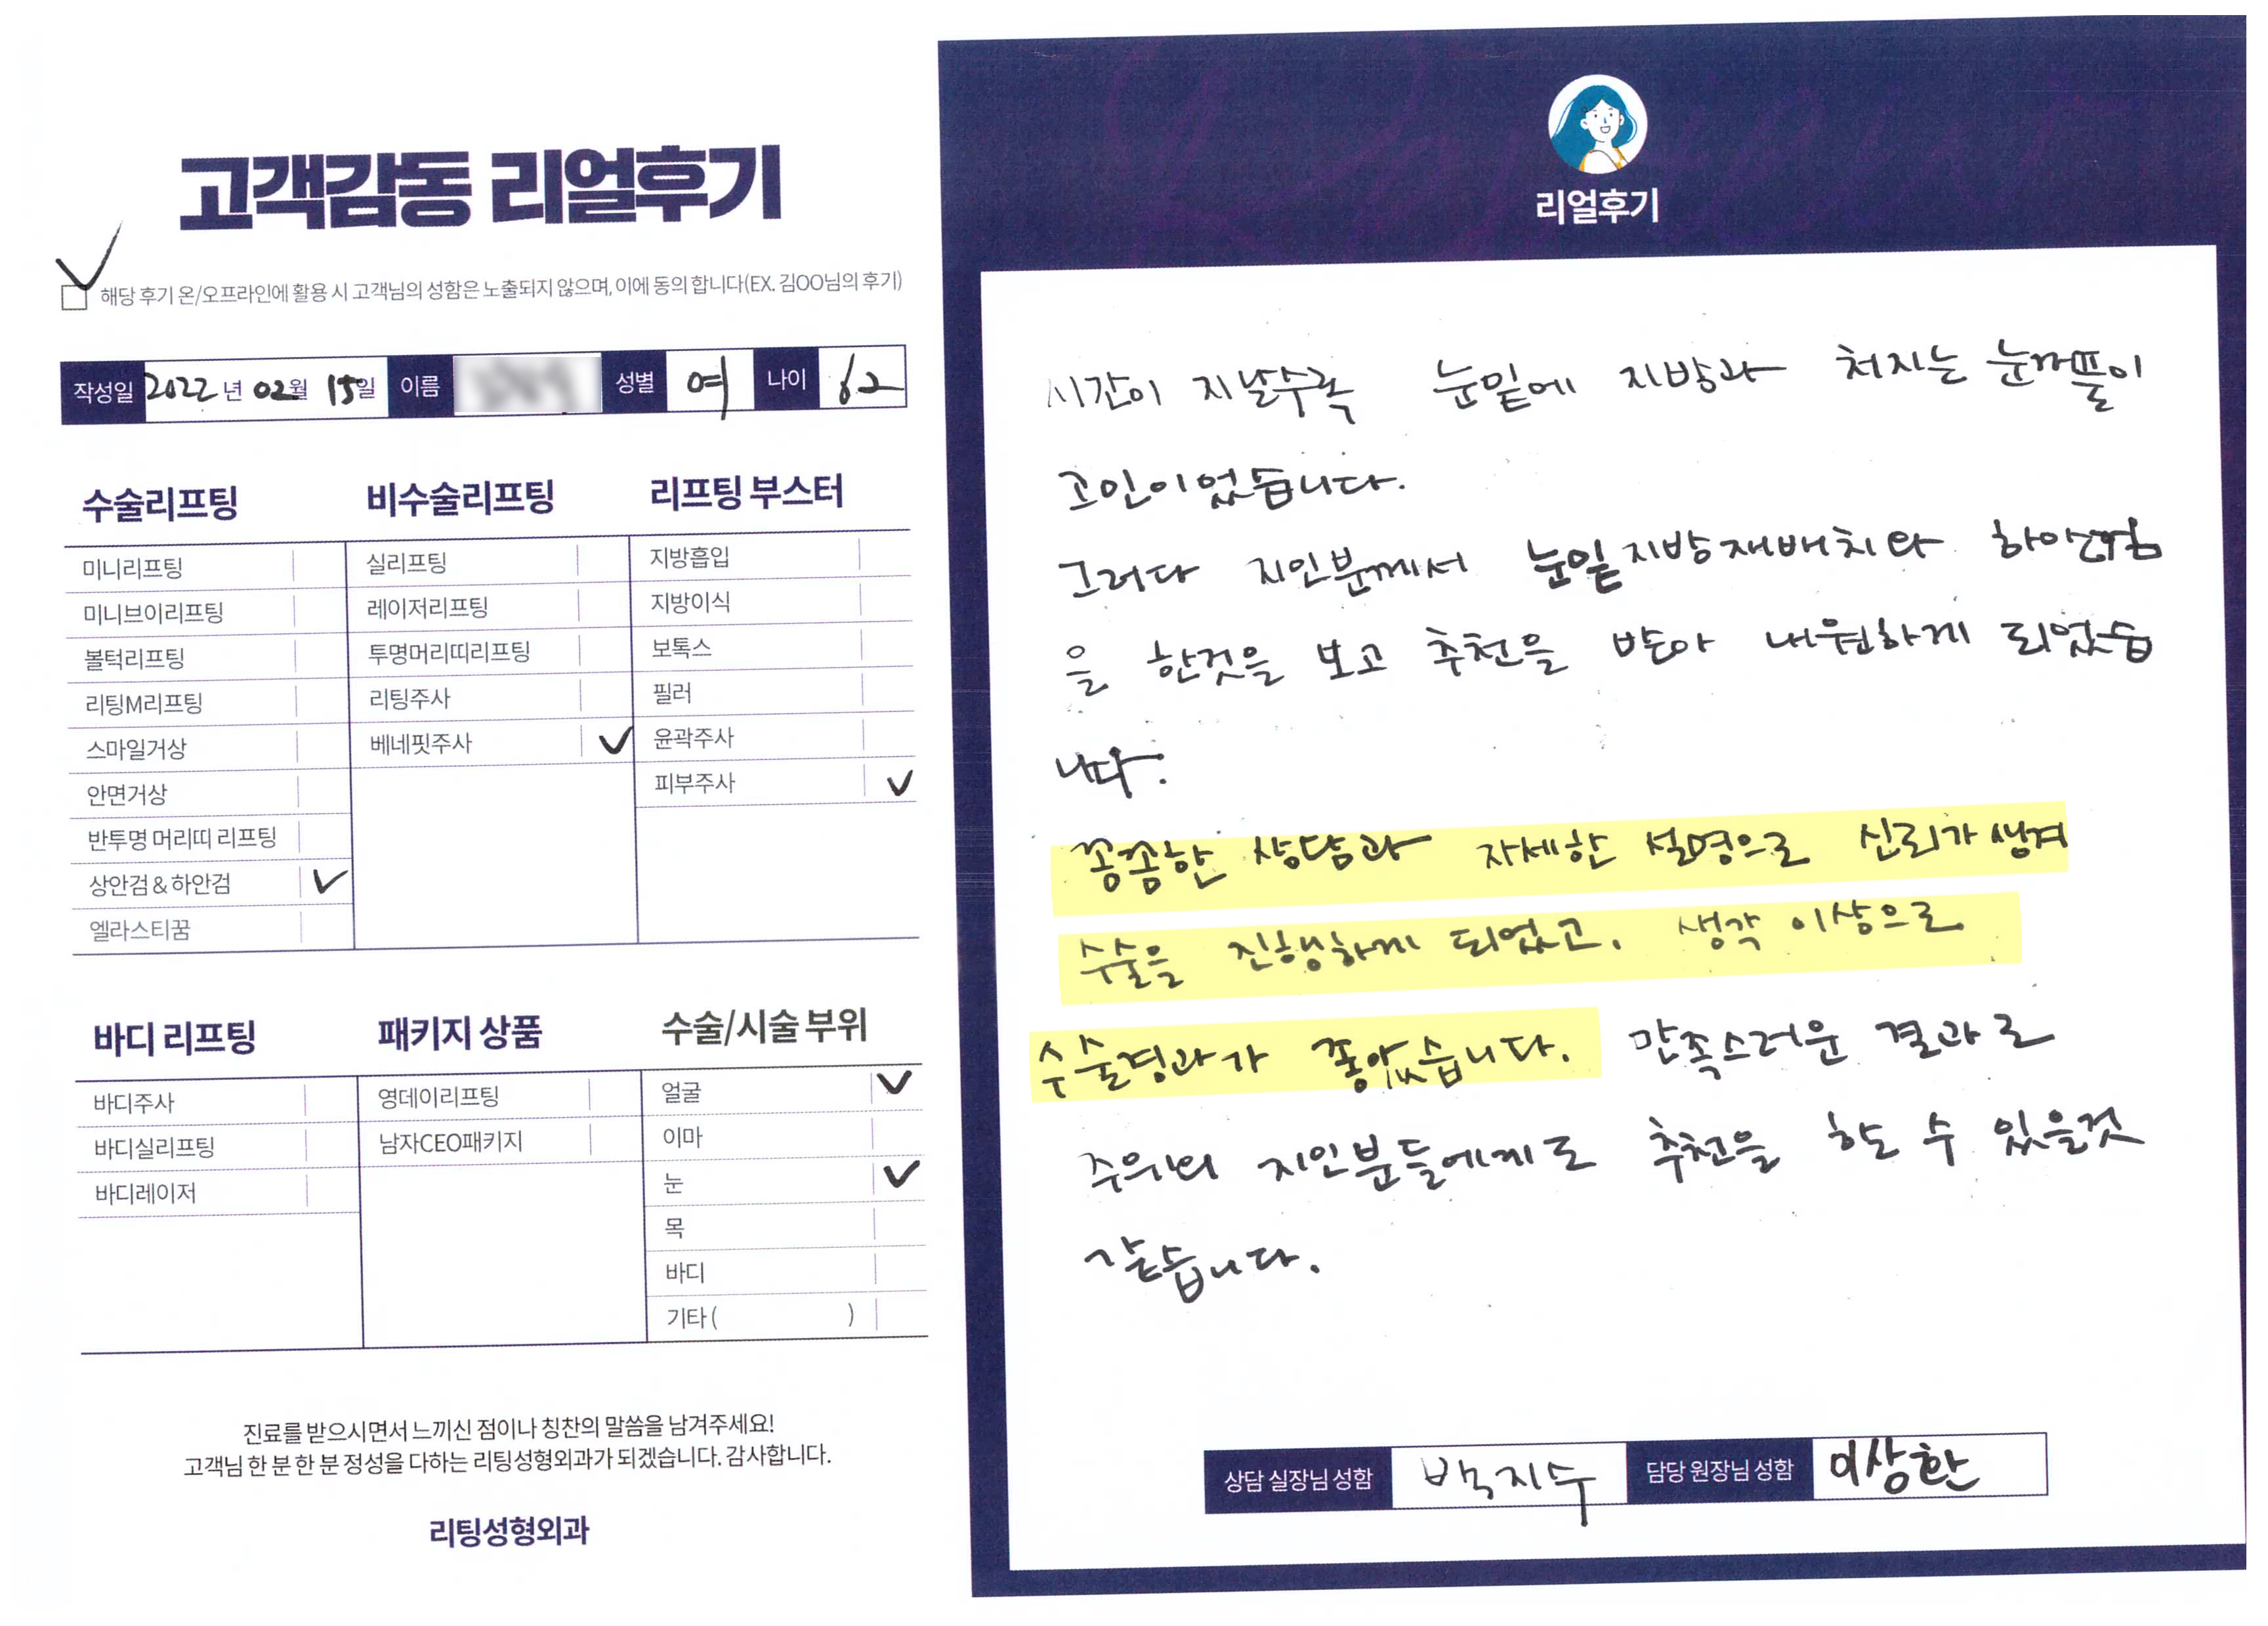 고객감동 리얼후기
해당 후기 온/오프라인에 활용 시 고객님의 성함은 노출되지 않으며, 이에 동의 합니다(EX. 김OO님의 후기)
작성일 2022년 02월 15일 이름 성별 여 나이 62
수술리프팅
미니리프팅
미니브이리프팅
볼턱리프팅
리팅M리프팅
스마일거상
안면거상
반투명 머리띠 리프팅
상안검 & 하안검
엘라스티꿈
비수술리프팅
실리프팅
레이저리프팅
투명머리띠리프팅
리팅주사
베네핏주사
리프팅 부스터
지방흡입
지방이식
보톡스
필러
윤곽주사
피부주사
바디 리프팅
바디주사
바디실리프팅
바디레이저
패키지 상품
영데이리프팅
남자CEO패키지
수술/시술 부위
얼굴
이마
눈
목
바디
기타 ( )
진료를 받으시면서 느끼신 점이나 칭찬의 말씀을 남겨주세요!
고객님 한 분 한 분 정성을 다하는 리팅성형외과가 되겠습니다. 감사합니다.
리팅성형외과
리얼후기
시간이 지날수록 눈밑에 지방과 처지는 눈꺼풀이
고민이었습니다.
그러다 지인분께서 눈밑지방재배치와 하안검
을 한것을 보고 추천을 받아 내원하게 되었습
니다.
꼼꼼한 상담과 자세한 설명으로 신뢰가 생겨
수술을 진행하게 되었고, 생각 이상으로
수술경과가 좋았습니다. 만족스러운 결과로
주위의 지인분들에게도 추천을 할 수 있을것
같습니다.
상담 실장님 성함 박지수 담당 원장님 성함 이상환